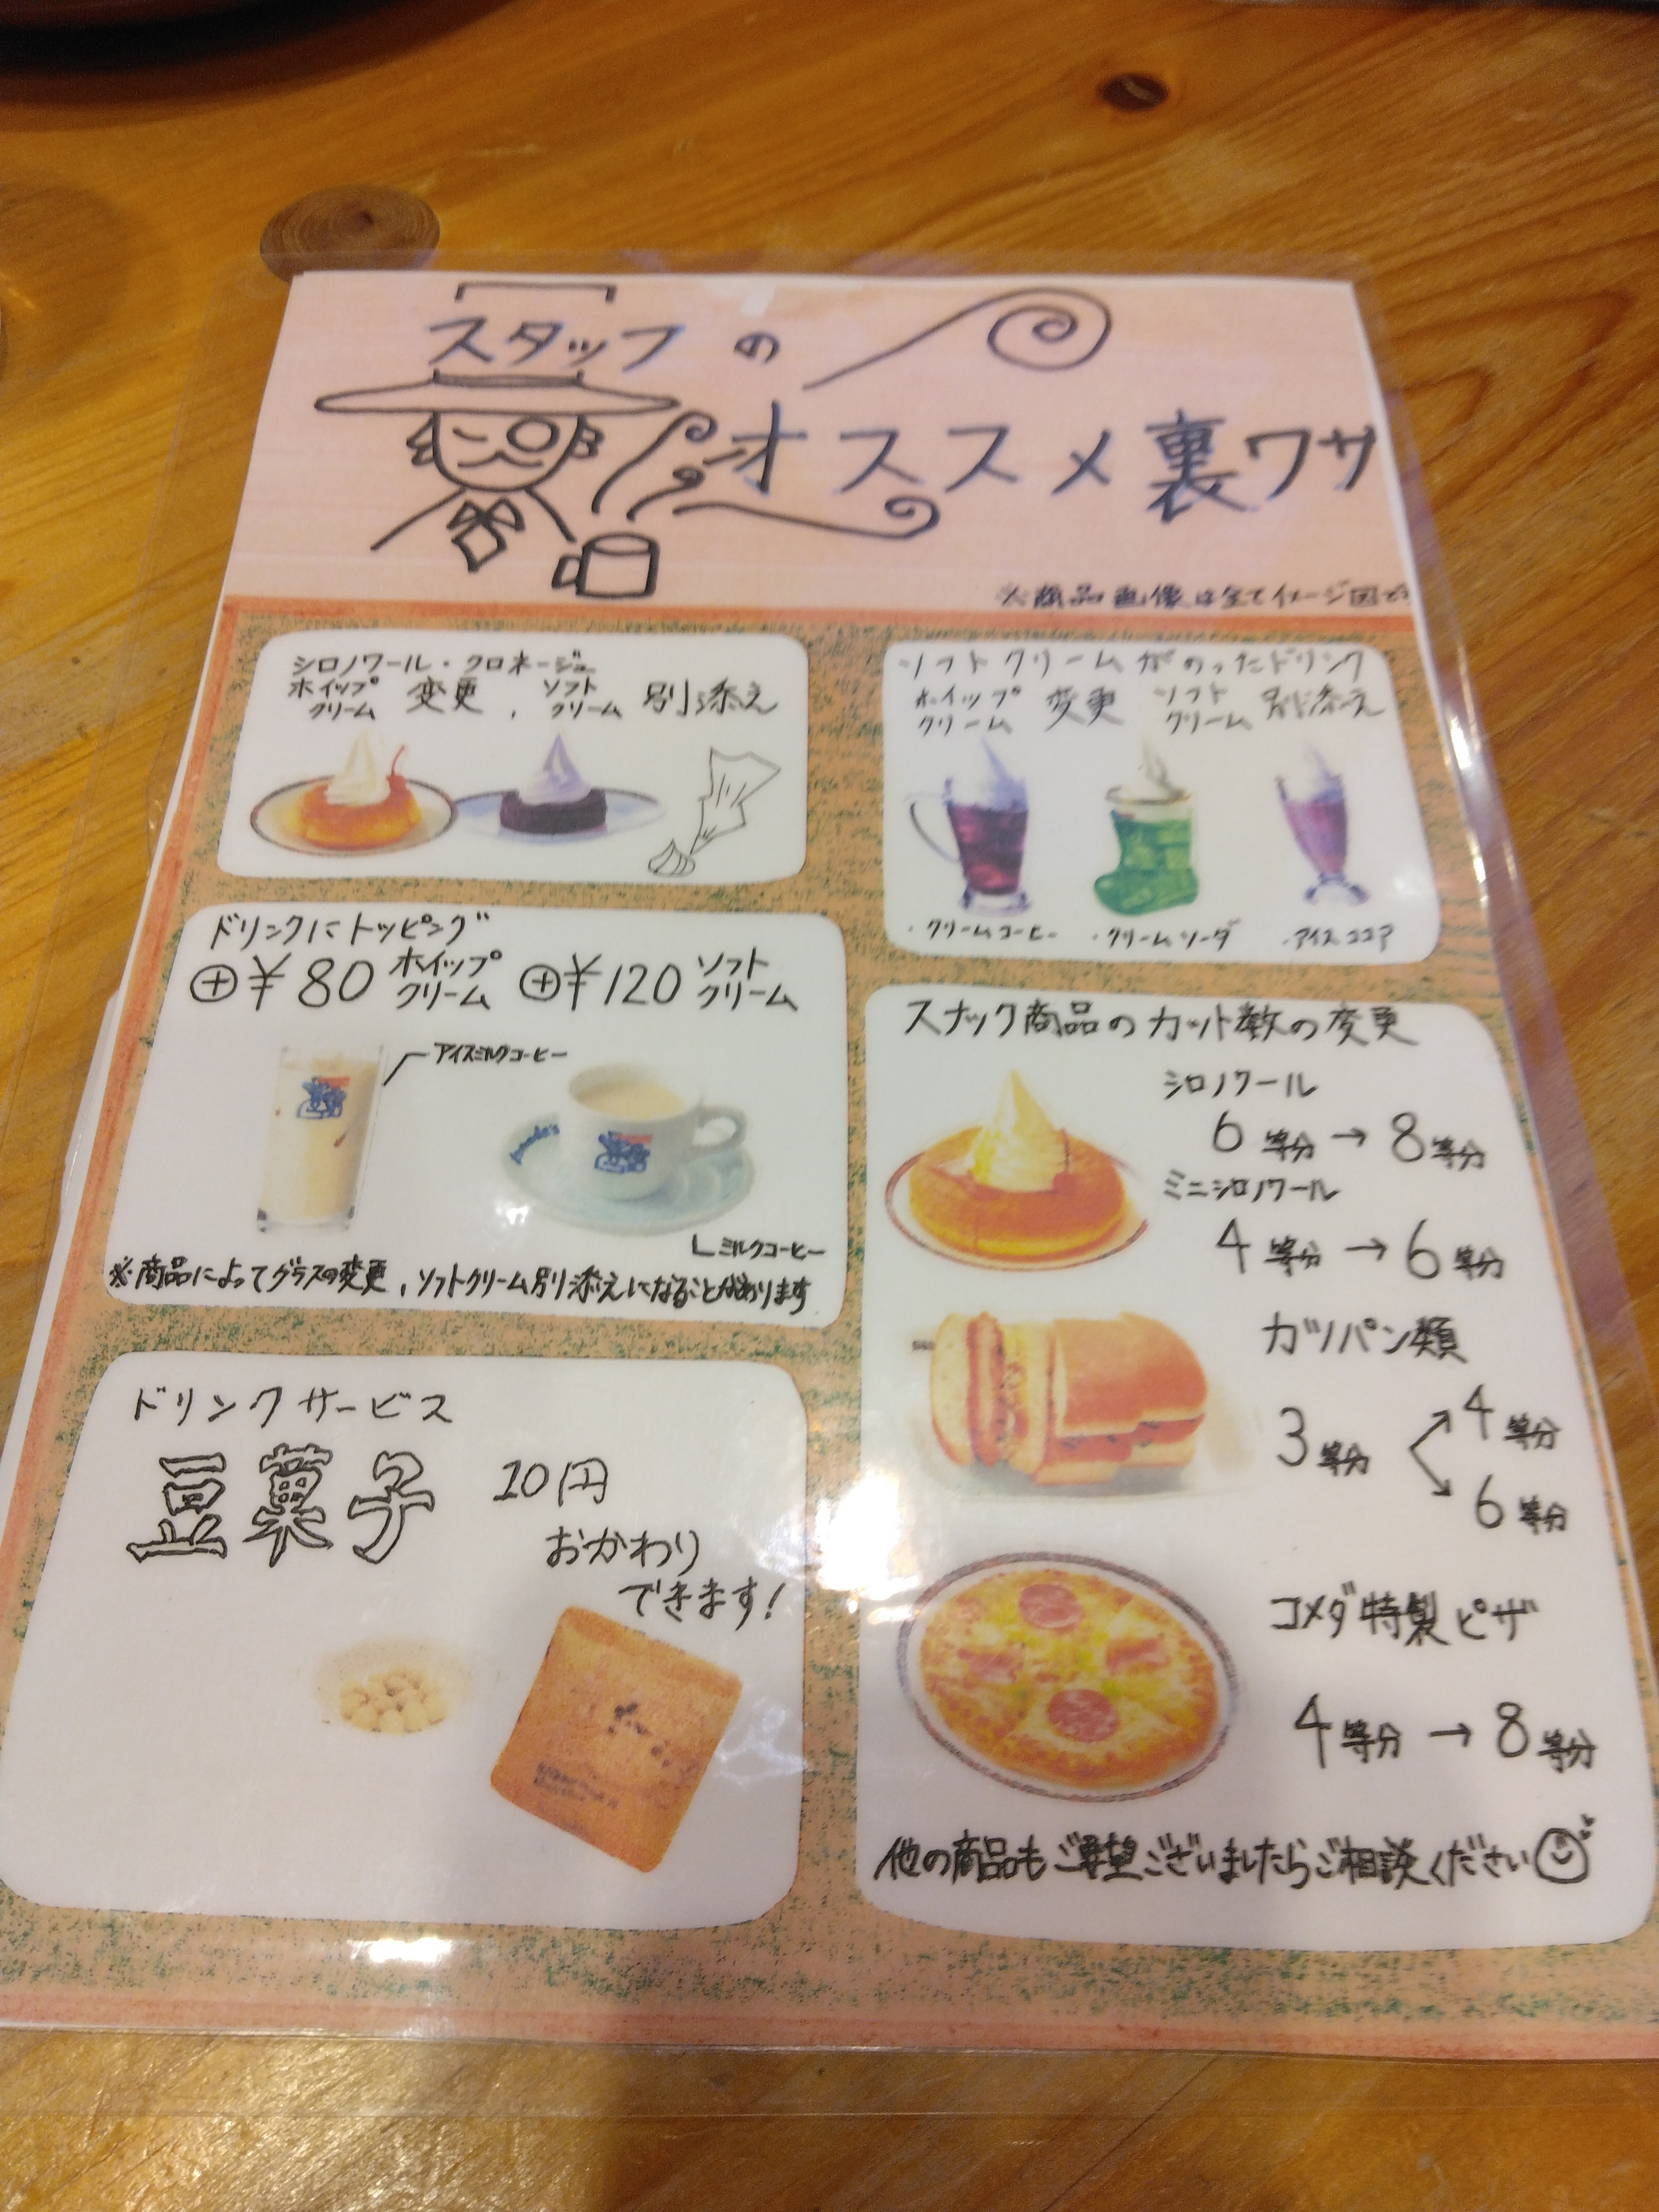 スタッフの
オススメ裏ワザ
※商品画像は全てイメージ図です
シロノワール・クロネージュ
ホイップクリーム 変更、ソフトクリーム 別添え
ソフトクリームがのったドリンク
ホイップクリーム 変更 ソフトクリーム 別添え
・クリームコーヒー ・クリームソーダ ・アイスココア
ドリンクにトッピング
⊕¥80 ホイップクリーム ⊕¥120 ソフトクリーム
アイスミルクコーヒー
ミルクコーヒー
※商品によってグラスの変更、ソフトクリーム別添えになることがあります
ドリンクサービス
豆菓子 10円
おかわり
できます!
スナック商品のカット数の変更
シロノワール
6等分→8等分
ミニシロノワール
4等分→6等分
カツパン類
3等分 4等分
6等分
コメダ特製ピザ
4等分→8等分
他の商品もご希望ございましたらご相談ください